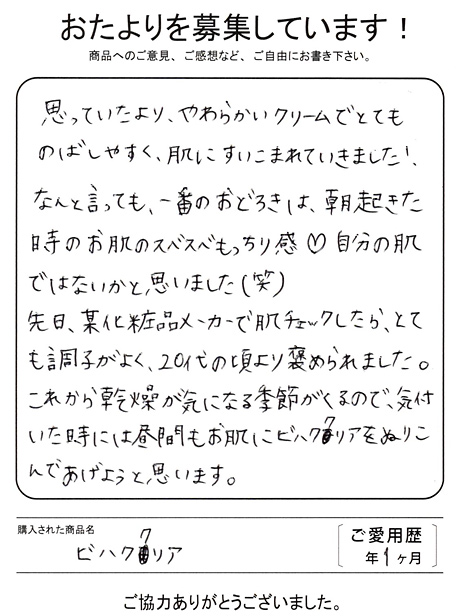 おたよりを募集しています！
商品へのご意見、ご感想など、ご自由にお書き下さい。
思っていたより、やわらかいクリームでとても
のばしやすく、肌にすいこまれていきました！、
なんと言っても、一番のおどろきは、朝起きた
時のお肌のスベスベもっちり感♡自分の肌
ではないかと思いました(笑)
先日、某化粧品メーカーで肌チェックしたら、とて
も調子がよく、20代の頃より褒められました。
これから乾燥が気になる季節がくるので、気付
いた時には昼間もお肌にビハククリアをぬりこ
んであげようと思います。
購入された商品名
ビハククリア
ご愛用歴
年1ヶ月
ご協力ありがとうございました。